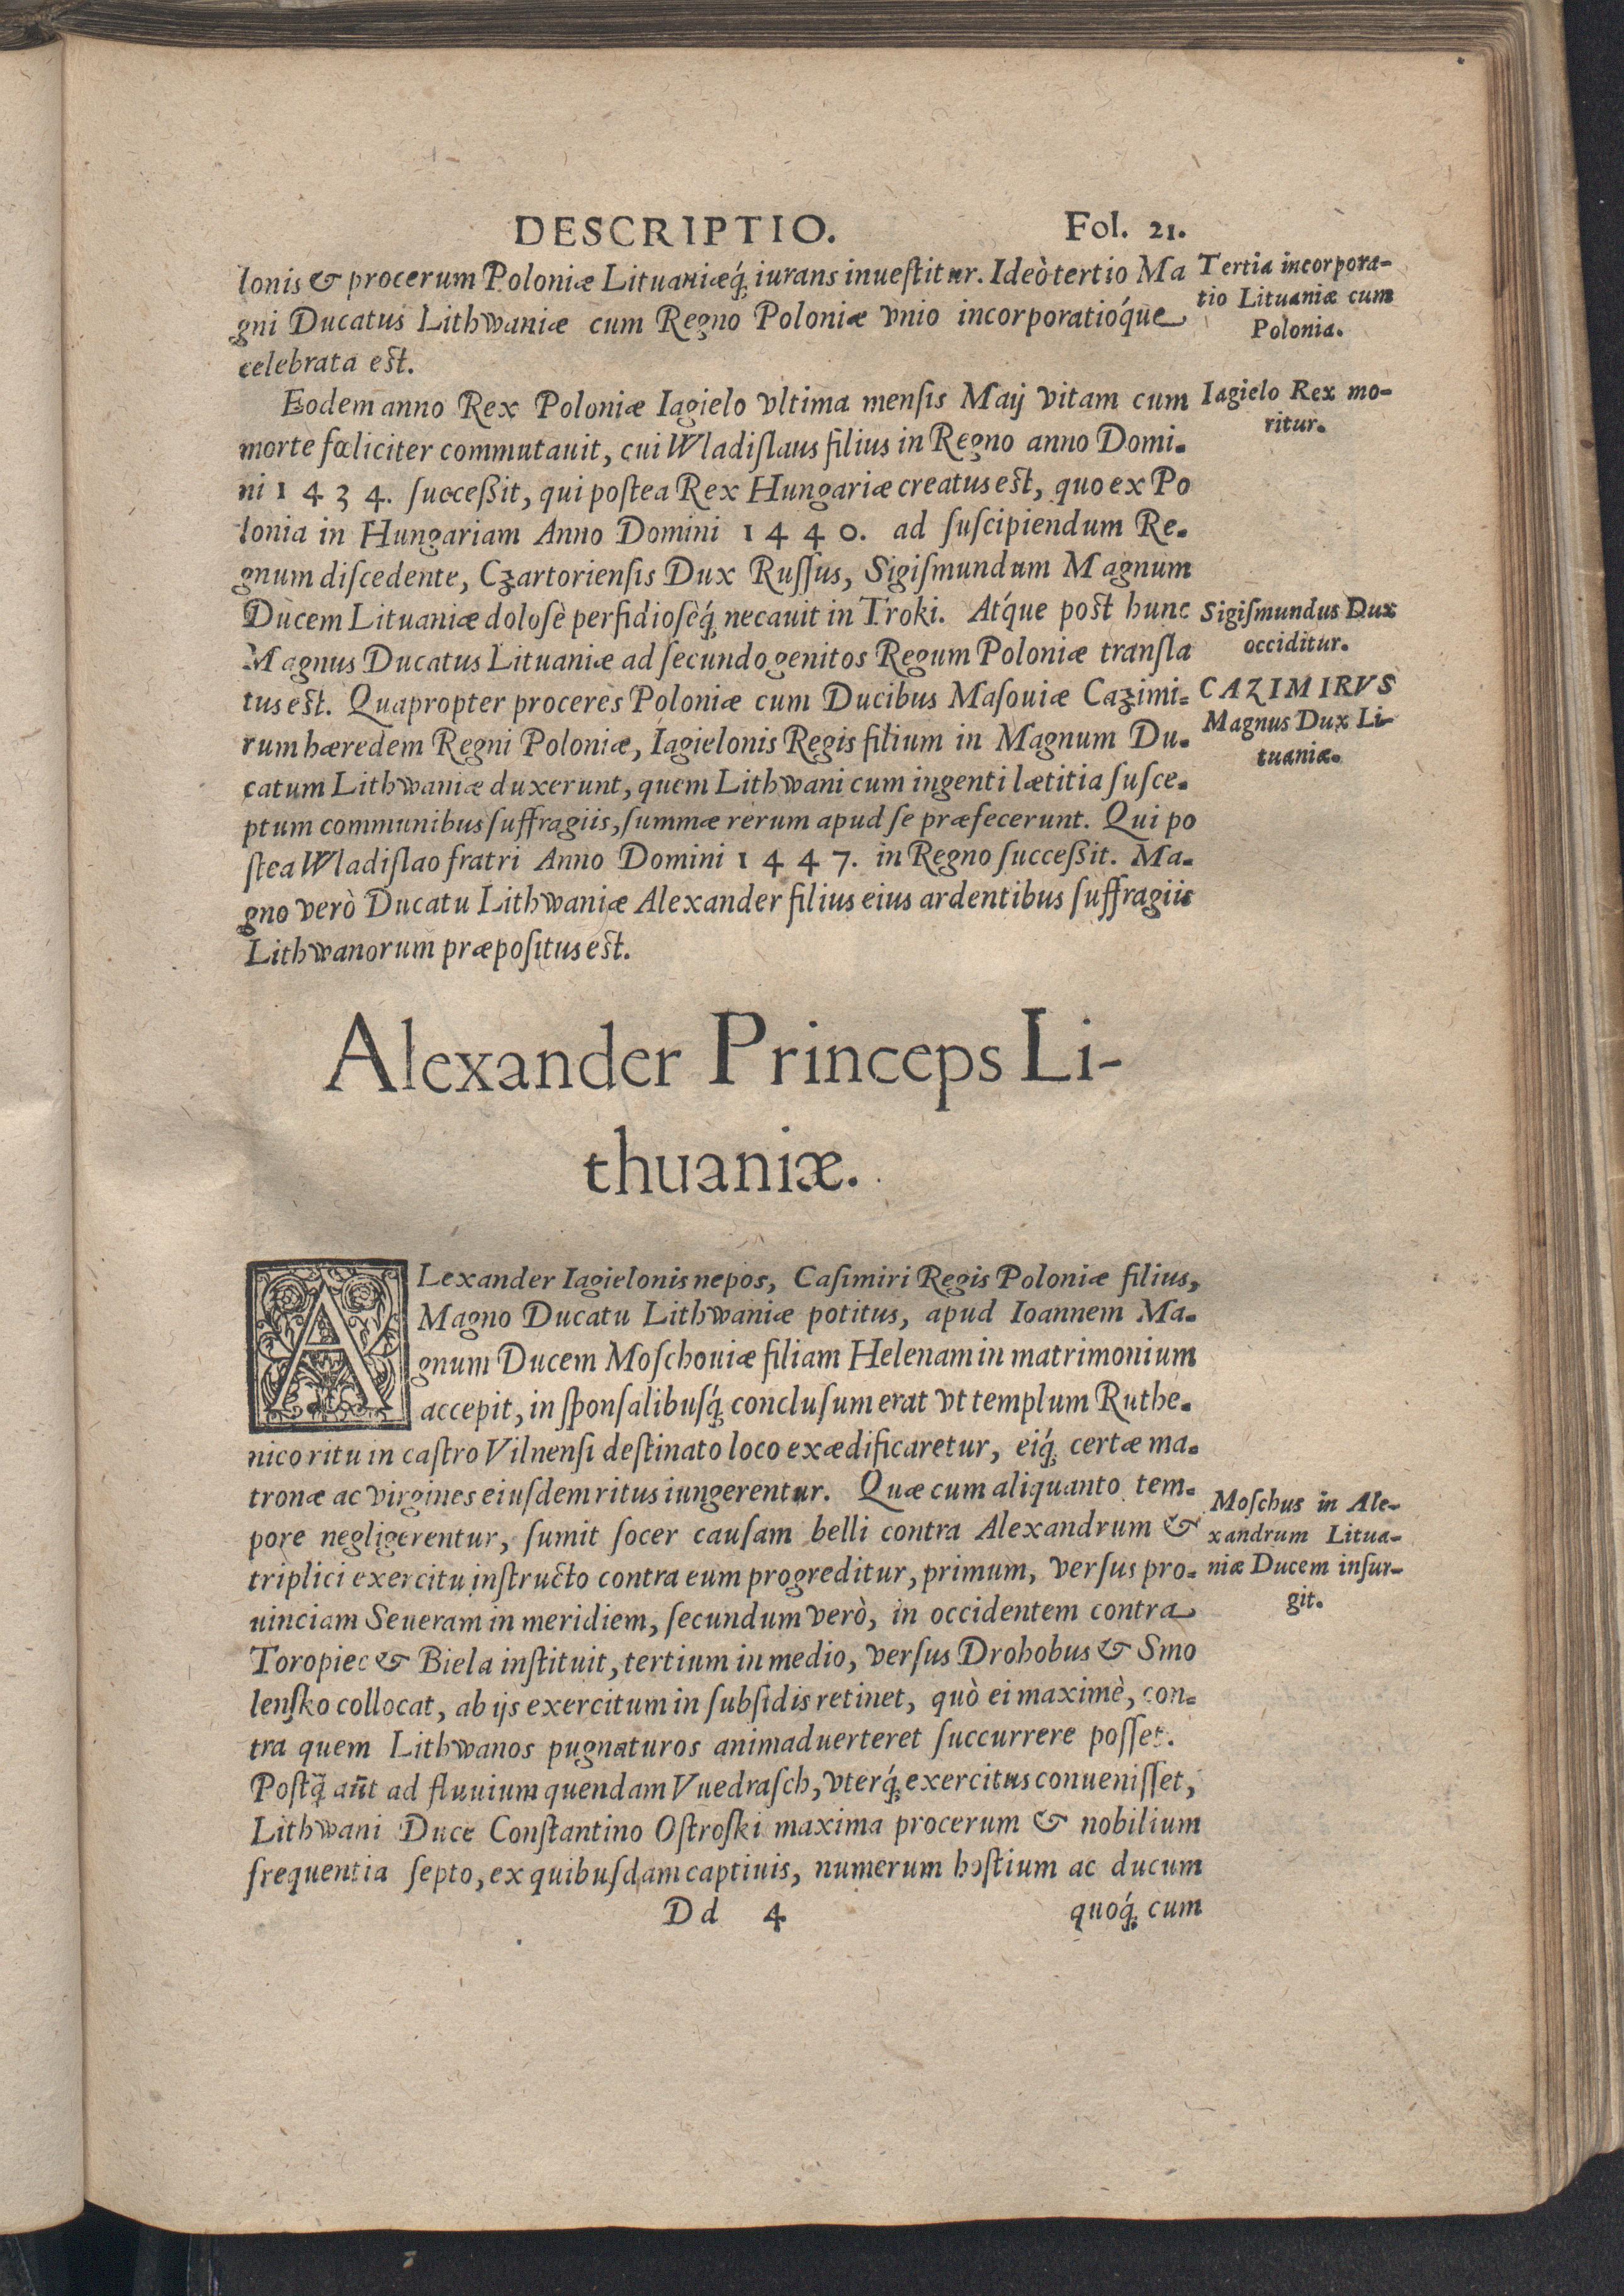 DESCRIPTIO. Fol. 21.
lonis & procerum Poloniæ Lituaniæq́; iurans inueſtitur. Ideò tertio Ma
gni Ducatus Lithwaniæ cum Regno Poloniæ vnio incorporatióque
celebrata eſt.
Tertia incorpora-
tio Lituaniæ cum
Polonia.
Eodem anno Rex Poloniæ Iagielo vltima menſis Maij vitam cum
morte fœliciter commutauit, cui Wladiſlaus filius in Regno anno Domi-
ni 1434. ſucceßit, qui poſtea Rex Hungariæ creatus eſt, quo ex Po
lonia in Hungariam Anno Domini 1440. ad ſuſcipiendum Re-
gnum diſcedente, Czartorienſis Dux Ruſſus, Sigiſmundum Magnum
Ducem Lituaniæ doloſè perfidioſèq́; necauit in Troki. Atque poſt hunc
Magnus Ducatus Lituaniæ ad ſecundo genitos Regum Poloniæ tranſla
tus eſt. Quapropter proceres Poloniæ cum Ducibus Maſouiæ Cazimi-
rum hæredem Regni Poloniæ, Iagielonis Regis filium in Magnum Du-
catum Lithwaniæ duxerunt, quem Lithwani cum ingenti lætitia ſuſce-
ptum communibus ſuffragiis, ſummæ rerum apud ſe præfecerunt. Qui po
ſtea Wladiſlao fratri Anno Domini 1447. in Regno ſucceßit. Ma-
gno verò Ducatu Lithwaniæ Alexander filius eius ardentibus ſuffragiis
Lithwanorum præpoſitus eſt.
Iagielo Rex mo-
ritur.
Sigiſmundus Dux
occiditur.
CAZIMIRVS
Magnus Dux Li-
tuaniæ.
Alexander Princeps Li-
thuaniæ.
ALexander Iagielonis nepos, Caſimiri Regis Poloniæ filius,
Magno Ducatu Lithwaniæ potitus, apud Ioannem Ma-
gnum Ducem Moſchouiæ filiam Helenam in matrimonium
accepit, in ſponſalibuſq́; concluſum erat vt templum Ruthe-
nico ritu in caſtro Vilnenſi deſtinato loco exædificaretur, eiq́; certæ ma-
tronæ ac virgines eiuſdem ritus iungerentur. Quæ cum aliquanto tem-
pore negligerentur, ſumit ſocer cauſam belli contra Alexandrum &
triplici exercitu inſtructo contra eum progreditur, primum, verſus pro-
uinciam Seueram in meridiem, ſecundum verò, in occidentem contra
Toropiec & Biela inſtituit, tertium in medio, verſus Drohobus & Smo
lenſko collocat, ab ijs exercitum in ſubſidis retinet, quò ei maximè, con-
tra quem Lithwanos pugnaturos animaduerteret ſuccurrere poſſet.
Poſtq̃ aũt ad fluuium quendam Vuedraſch, vterq́; exercitus conueniſſet,
Lithwani Duce Conſtantino Oſtroſki maxima procerum & nobilium
frequentia ſepto, ex quibuſdam captiuis, numerum hoſtium ac ducum
Moſchus in Ale-
xandrum Litua-
niæ Ducem inſur-
git.
Dd 4 quoq́; cum